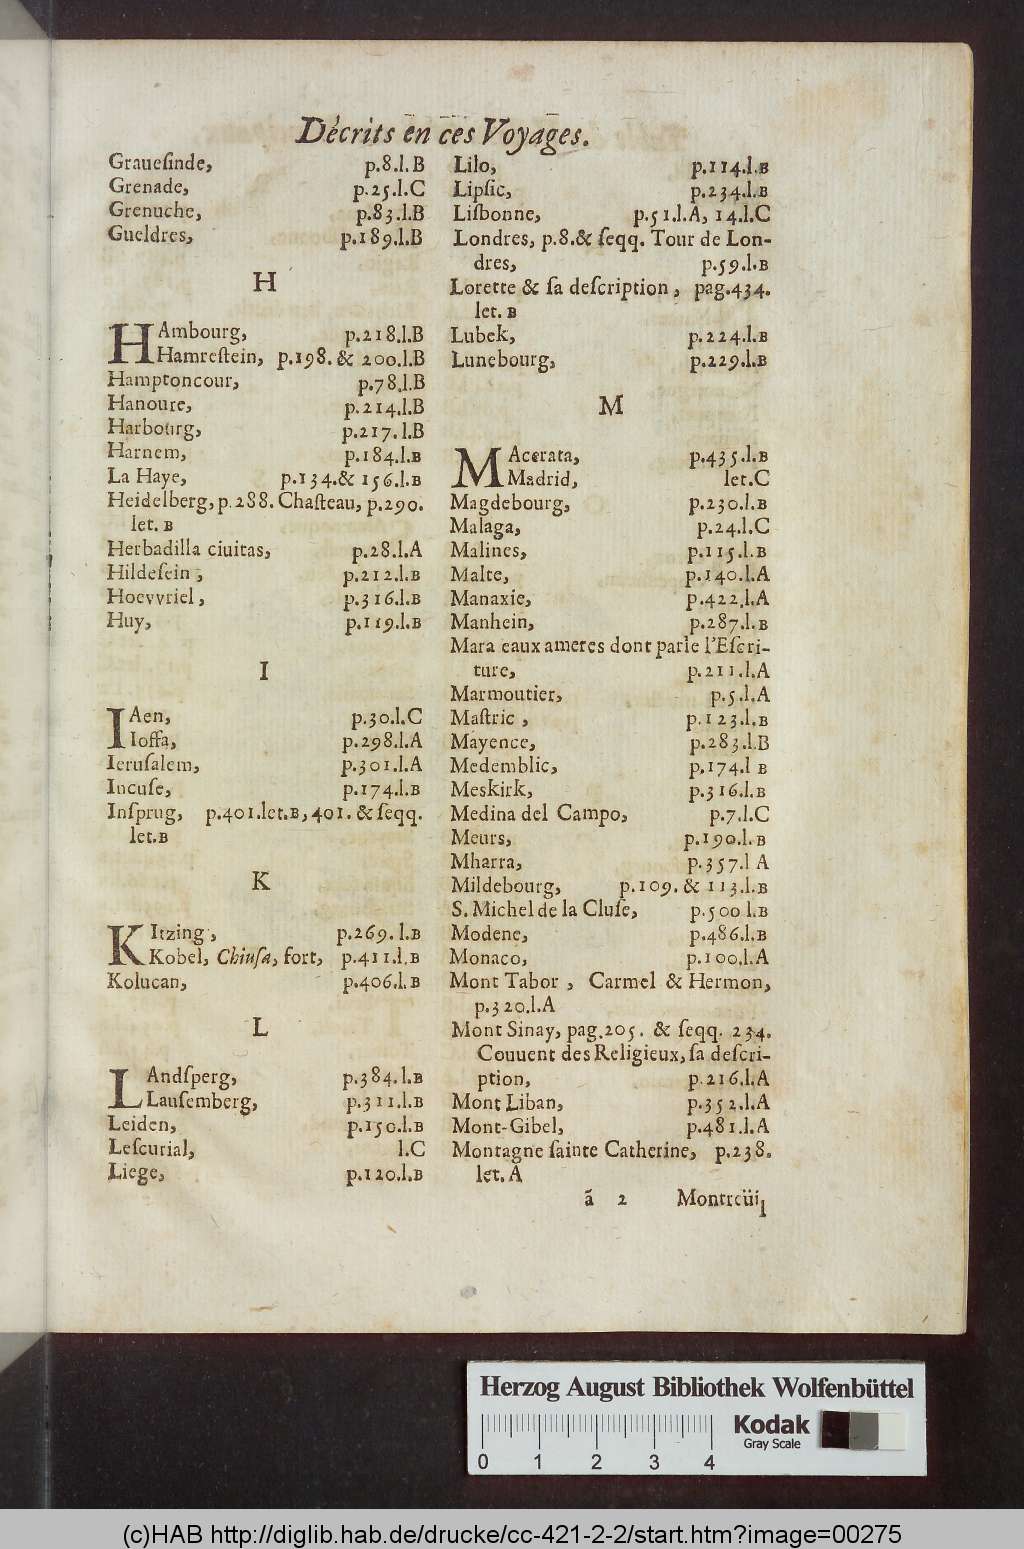 Décrits en ces Voyages.
Grauesinde, p.8.l.B
Grenade, p.25.l.C
Grenuche, p.83.l.B
Gueldres, p.189.l.B
H
HAmbourg, p.218.l.B
Hamrestein, p.198. & 200.l.B
Hamptoncour, p.78.l.B
Hanoure, p.214.l.B
Harbourg, p.217.l.B
Harnem, p.184.l.B
La Haye, p.134.& 156.l.B
Heidelberg, p.288. Chasteau, p.290.
let. B
Herbadilla ciuitas, p.28.l.A
Hildesein, p.212.l.B
Hoevvriel, p.316.l.B
Huy, p.119.l.B
I
IAen, p.30.l.C
Ioffa, p.298.l.A
Ierusalem, p.301.l.A
Incuse, p.174.l.B
Insprug, p.401.let.B, 401. & seqq.
let.B
K
KItzing, p.269. l.B
Kobel, Chiusa, fort, p.411.l.B
Kolucan, p.406.l.B
L
LAndsperg, p.384.l.B
Lausemberg, p.311.l.B
Leiden, p.150.l.B
Lescurial, l.C
Liege, p.120.l.B
Lilo, p.114.l.B
Lipsic, p.234.l.B
Lisbonne, p.51.l.A, 14.l.C
Londres, p.8.& seqq. Tour de Lon-
dres, p.59.l.B
Lorette & sa description, pag.434.
let. B
Lubek, p.224.l.B
Lunebourg, p.229.l.B
M
MAcerata, p.435.l.B
Madrid, let.C
Magdebourg, p.230.l.B
Malaga, p.24.l.C
Malines, p.115.l.B
Malte, p.140.l.A
Manaxie, p.422.l.A
Manhein, p.287.l.B
Mara eaux ameres dont parle l'Escri-
ture, p.211.l.A
Marmoutier, p.5.l.A
Mastric, p.123.l.B
Mayence, p.283.l.B
Medemblic, p.174.l B
Meskirk, p.316.l.B
Medina del Campo, p.7.l.C
Meurs, p.190.l.B
Mharra, p.357.l A
Mildebourg, p.109. & 113.l.B
S. Michel de la Cluse, p.500 l.B
Modene, p.486.l.B
Monaco, p.100.l.A
Mont Tabor, Carmel & Hermon,
p.320.l.A
Mont Sinay, pag.205. & seqq. 234.
Couuent des Religieux, sa descri-
ption, p.216.l.A
Mont Liban, p.352.l.A
Mont-Gibel, p.481.l.A
Montagne sainte Catherine, p.238.
let. A
ã 2 Montreüil
Herzog August Bibliothek Wolfenbüttel
Kodak
Gray Scale
0 1 2 3 4
(c)HAB http://diglib.hab.de/drucke/cc-421-2-2/start.htm?image=00275